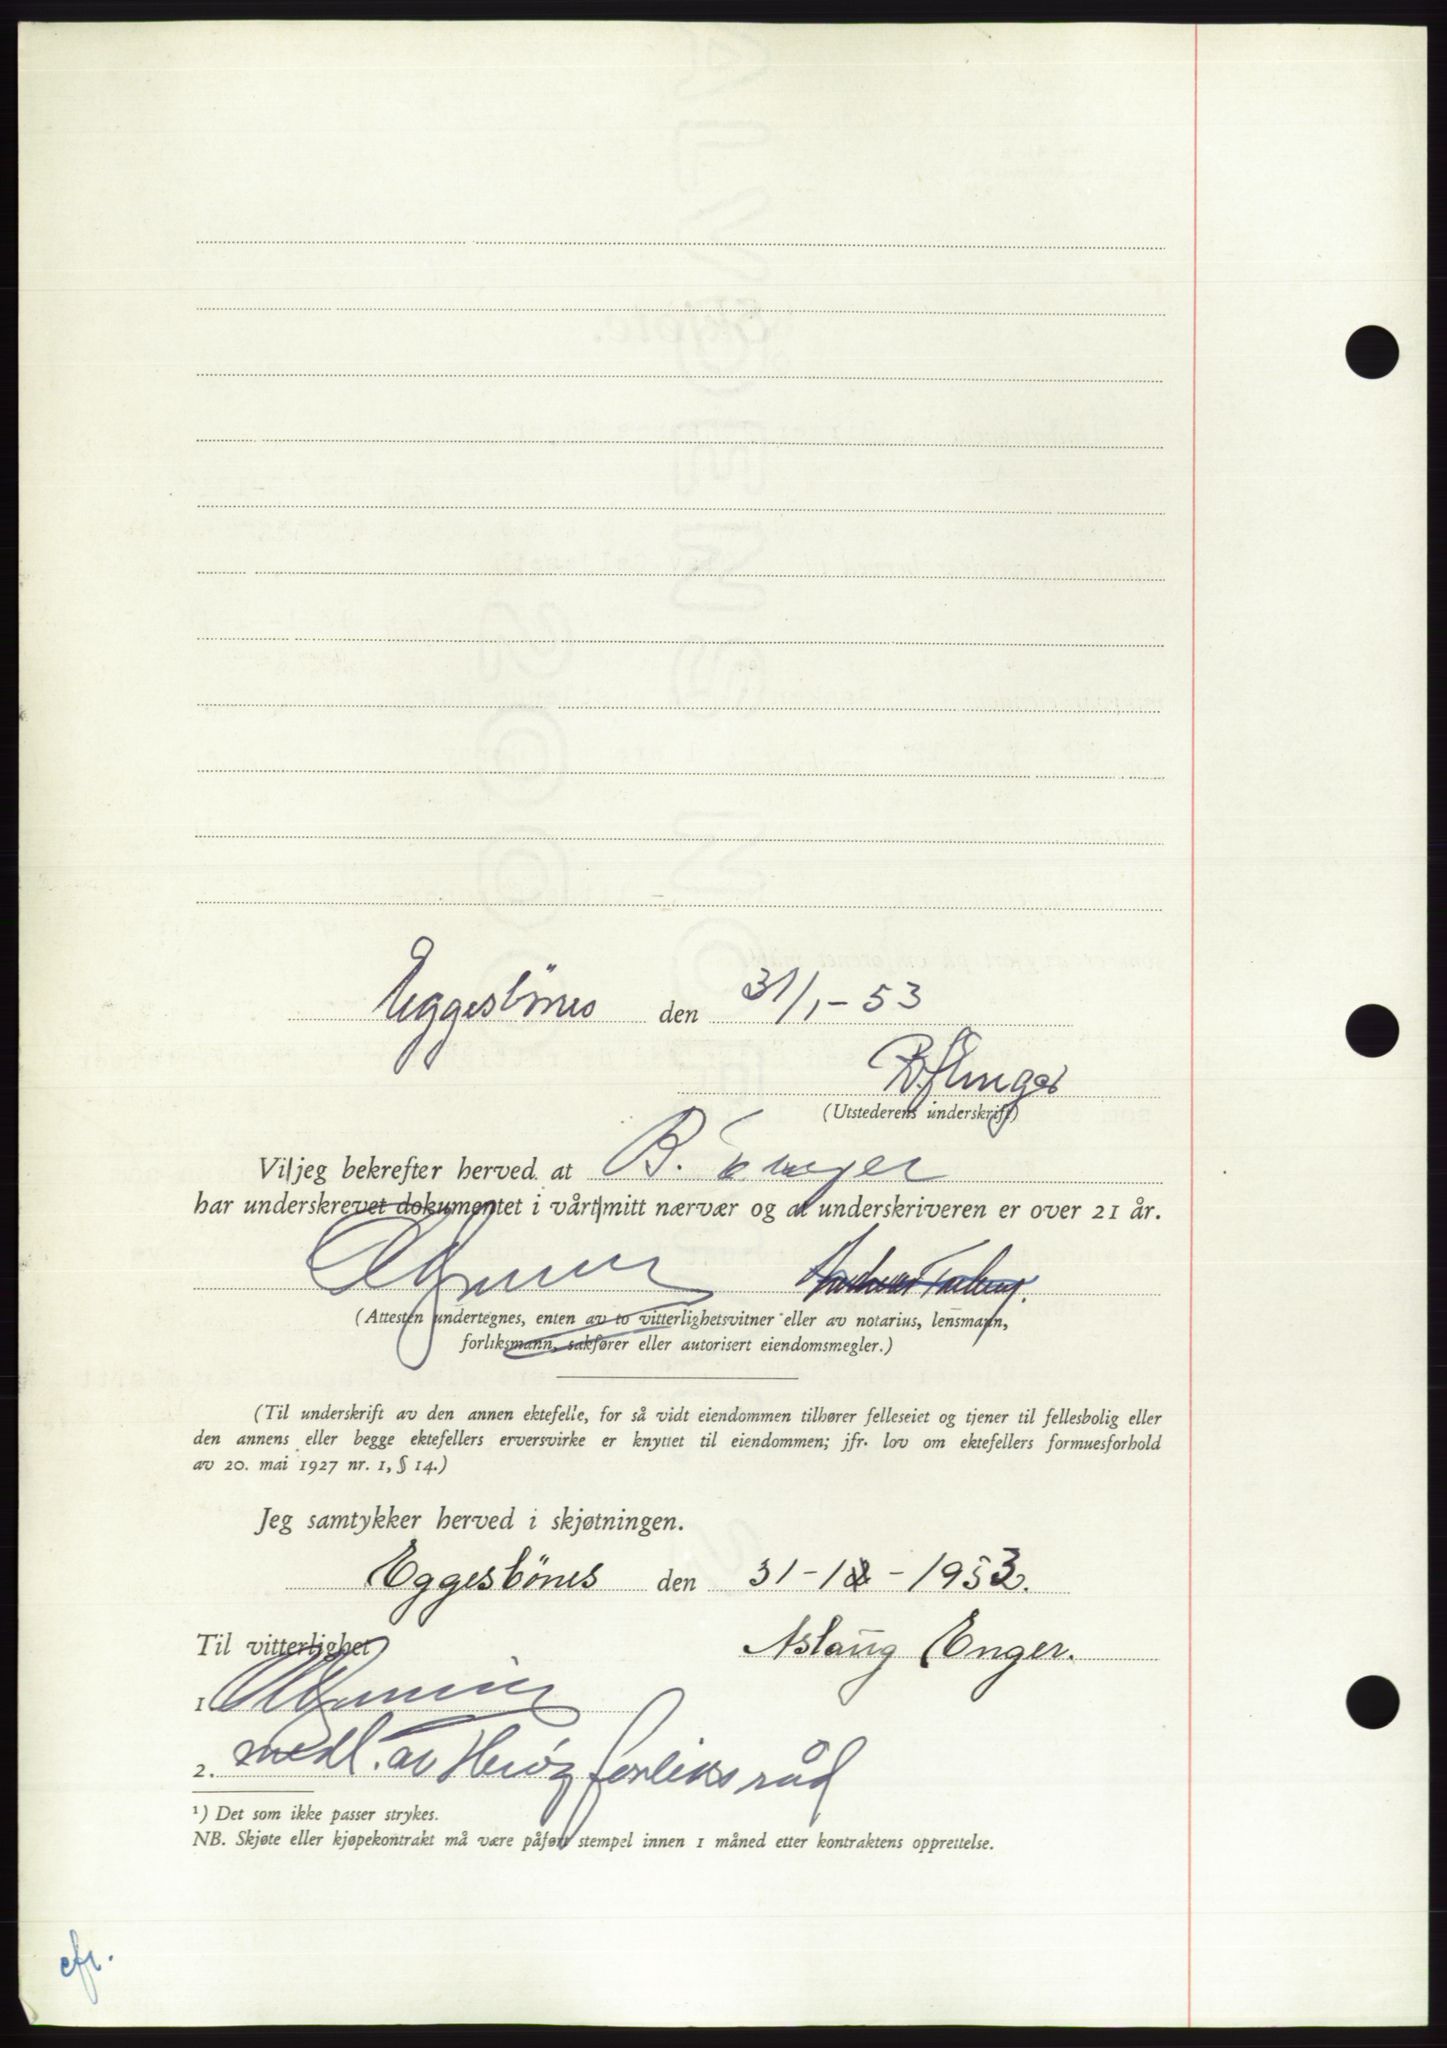 Eggesbönes den 31/1-53
B. Enger
(Utstederens underskrift)
Vi/jeg bekrefter herved at B. Enger
har underskrevet dokumentet i vårt/mitt nærvær og at underskriveren er over 21 år.
(Attesten undertegnes, enten av to vitterlighetsvitner eller av notarius, lensmann,
forliksmann, sakfører eller autorisert eiendomsmegler.)
(Til underskrift av den annen ektefelle, for så vidt eiendommen tilhører felleseiet og tjener til fellesbolig eller
den annens eller begge ektefellers erversvirke er knyttet til eiendommen; jfr. lov om ektefellers formuesforhold
av 20. mai 1927 nr. 1, § 14.)
Jeg samtykker herved i skjøtningen.
Eggesbönes den 31-1-1953.
Til vitterlighet Aslaug Enger.
1.
2. medl. av Herøy forliksråd
¹) Det som ikke passer strykes.
NB. Skjøte eller kjøpekontrakt må være påført stempel innen 1 måned etter kontraktens opprettelse.
cfr.